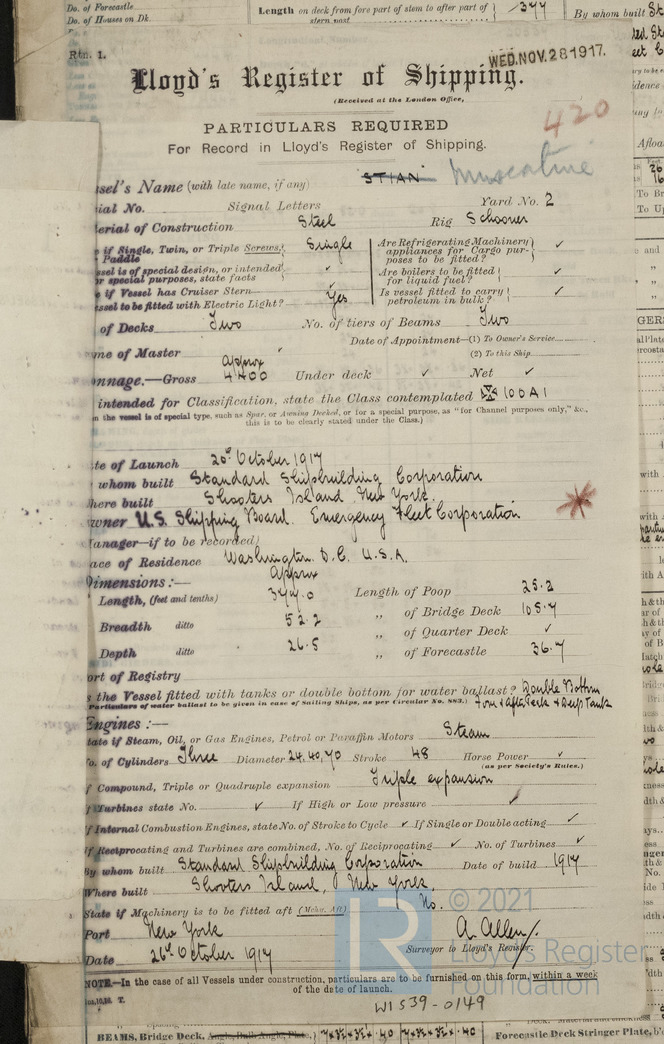 Do. of Forecastle
Do. of Houses on Dk.
Length on deck from fore part of stem to after part of stern post 344
By whom built
Rtn. 1.
WED. NOV. 28 1917.
Lloyd's Register of Shipping.
(Received at the London Office,
420
PARTICULARS REQUIRED
For Record in Lloyd's Register of Shipping.
ssel's Name (with late name, if any) STIAN Muscatine
ial No. Signal Letters Yard No. 2
erial of Construction Steel Rig Schooner
e if Single, Twin, or Triple Screws, Paddle Single
Are Refrigerating Machinery appliances for Cargo purposes to be fitted? ✓
ssel is of special design, or intended or special purposes, state facts ✓
Are boilers to be fitted for liquid fuel? ✓
e if Vessel has Cruiser Stern ✓
Is vessel fitted to carry petroleum in bulk? ✓
essel to be fitted with Electric Light? Yes
of Decks Two No. of tiers of Beams Two
Date of Appointment—(1) To Owner's Service
me of Master ✓ (2) To this Ship
Approx
nnage.—Gross 4400 Under deck ✓ Net ✓
intended for Classification, state the Class contemplated 100A1
n the vessel is of special type, such as Spar, or Awning Decked, or for a special purpose, as "for Channel purposes only," &c.,
this is to be clearly stated under the Class.)
te of Launch 20th October 1917
whom built Standard Shipbuilding Corporation
here built Shooters Island New York.
wner U.S. Shipping Board. Emergency Fleet Corporation
anager—if to be recorded)
ace of Residence Washington. D.C. U.S.A.
Dimensions:— Approx
Length, (feet and tenths) 344.0 Length of Poop 25.2
Breadth ditto 52.2 „ of Bridge Deck 105.7
„ of Quarter Deck ✓
Depth ditto 26.5 „ of Forecastle 36.7
ort of Registry
s the Vessel fitted with tanks or double bottom for water ballast? Double Bottom
(Particulars of water ballast to be given in case of Sailing Ships, as per Circular No. 883.) Fore & Aft Peaks & Deep Tank
Engines:—
tate if Steam, Oil, or Gas Engines, Petrol or Paraffin Motors Steam
No. of Cylinders Three Diameter 24, 40, 70 Stroke 48 Horse Power ✓
(as per Society's Rules.)
f Compound, Triple or Quadruple expansion Triple expansion
f Turbines state No. ✓ If High or Low pressure ✓
f Internal Combustion Engines, state No. of Stroke to Cycle ✓ If Single or Double acting ✓
f Reciprocating and Turbines are combined, No. of Reciprocating ✓ No. of Turbines ✓
By whom built Standard Shipbuilding Corporation Date of build 1917
Where built Shooters Island, New York.
State if Machinery is to be fitted aft (Mchy. Aft) No.
Port New York A. Allen
Surveyor to Lloyd's Register.
Date 26th October 1917
NOTE.—In the case of all Vessels under construction, particulars are to be furnished on this form, within a week
of the date of launch.
W1539-0149
LR © 2021
Lloyd's Register
Foundation
BEAMS, Bridge Deck, Angle, Bulb Angle, Plate, Forecastle Deck Stringer Plate,